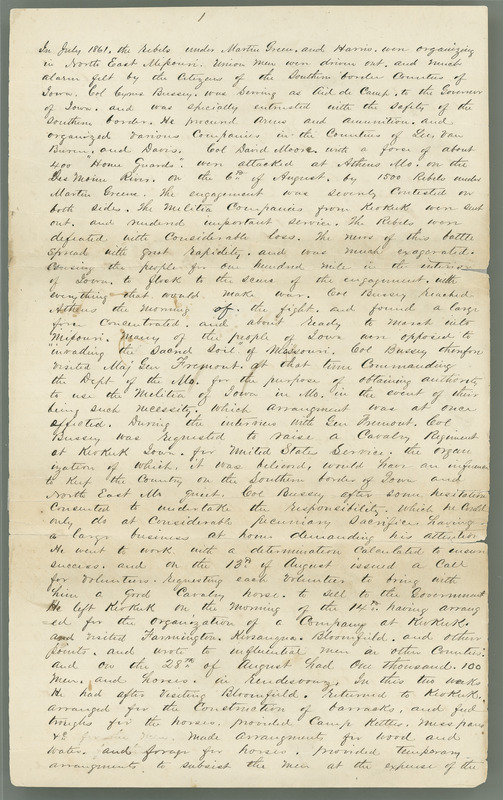 1
In July 1861, the Rebels under Martin Green, and Harris, were organizing
in North East Missouri. Union men were driven out, and much
alarm felt by the Citizens of the Southern border Counties of
Iowa. Col Cyrus Bussey, was serving as Aid de Camp, to the Governor
of Iowa, and was specially entrusted with the safety of the
Southern border. He procured arms and ammunition, and
organized various Companies in the Counties of Lee, Van
Buren, and Davis. Col David Moore with a force of about
400 "Home Guards" were attacked at Athens Mo. on the
Des Moine River, on the 6th of August, by 1500 Rebels under
Martin Greene. The engagement was severely Contested on
both sides. The Militia Companies from Keokuk were sent
out, and rendered important service. The Rebels were
defeated with Considerable loss. The news of this battle
spread with great rapidity, and was much exagerated.
Causing the people for one hundred mile in the interior
of Iowa, to flock to the scene of the engagement, with
everything that would make war. Col Bussey reached
Athens the morning of the fight, and found a large
force Concentrated, and about ready to march into
Missouri. Many of the people of Iowa were opposed to
invading the Sacred Soil of Missouri. Col Bussey therefore
visited Maj Gen Fremont, at that time Commanding
the Dept of the Mo. for the purpose of obtaining authority
to use the Militia of Iowa in Mo. in the event of their
being such necessity, which arrangment was at once
effected. During the interview with Gen Fremont, Col
Bussey was requested to raise a Cavalry Regiment
at Keokuk Iowa, for United States Service, the organ
ization of which, it was believed, would have an influence
to keep the Country on the Southern border of Iowa and
North East Mo quiet. Col Bussey after some hesitation
Consented to undertake the responsibility, which he Could
only do at Considerable pecuniary Sacrifice having
a large business at home demanding his attention
He went to work with a determination Calculated to ensure
success, and on the 13th of August issued a Call
for volunteers, requesting each volunteer to bring with
him a good Cavalry horse, to sell to the Government
He left Keokuk on the Morning of the 14th having arrang
ed for the organization of a Company at Keokuk,
and visited Farmington, Keosauqua, Bloomfield, and other
points, and wrote to influential men in other Counties
and on the 28th of August had One thousand, 100
Men, and horses, in rendesvous, In this two weeks
He had after visiting Bloomfield, returned to Keokuk,
arranged for the Construction of barracks, and feed
troughs for the horses, provided Camp Kettles, mess pans
&c made arrangments for wood and
water, and forage for horses, provided temporary
arrangments to subsist the men at the expense of the